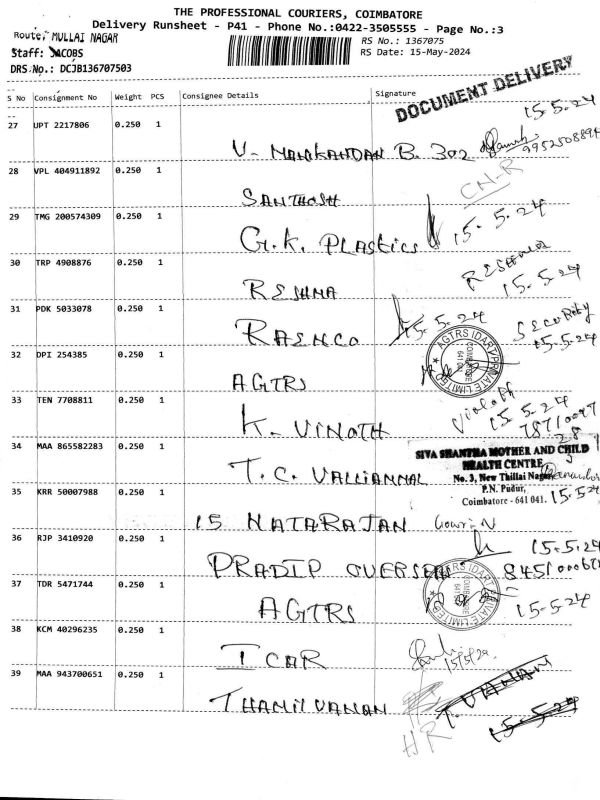 THE PROFESSIONAL COURIERS, COIMBATORE
Delivery Runsheet - P41 - Phone No.:0422-3505555 - Page No.:3
Route: MULLAI NAGAR
RS No.: 1367075
Staff: JACOBS
RS Date: 15-May-2024
DRS No.: DCJB136707503
S No Consignment No Weight PCS Consignee Details Signature
DOCUMENT DELIVERY
15.5.24
27 UPT 2217806 0.250 1
V- MANOKANDAN B. 302 9952508894
28 VPL 404911892 0.250 1
CN-R
SANTHOSH
29 TMG 200574309 0.250 1
G.K. PLASTICS 15.5.24
30 TRP 4908876 0.250 1
RESHMA
RESHMA 15.5.24
31 PDK 5033078 0.250 1
RAENCO 15.5.24
SECURITY
15.5.24
32 DPI 254385 0.250 1
AGTRS
AGTRS IDARV PRIVATE LIMITED
COIMBATORE
33 TEN 7708811 0.250 1
K. VINOTH
Vinoth 15.5.24
34 MAA 865582283 0.250 1
T.C. VALLIAMMAL
SIVA SHANTHA MOTHER AND CHILD
HEALTH CENTRE
No. 3, New Thillai Nagar,
P.N. Pudur,
Coimbatore - 641 041. 15.5.24
35 KRR 50007988 0.250 1
15 NATARAJAN Gowri.N
36 RJP 3410920 0.250 1
15.5.24
PRADIP OVERSEAS
37 TDR 5471744 0.250 1
AGTRS 15.5.24
38 KCM 40296235 0.250 1
ICAR 15/5/24
39 MAA 943700651 0.250 1
THAMILVANAN
15.5.24
HR